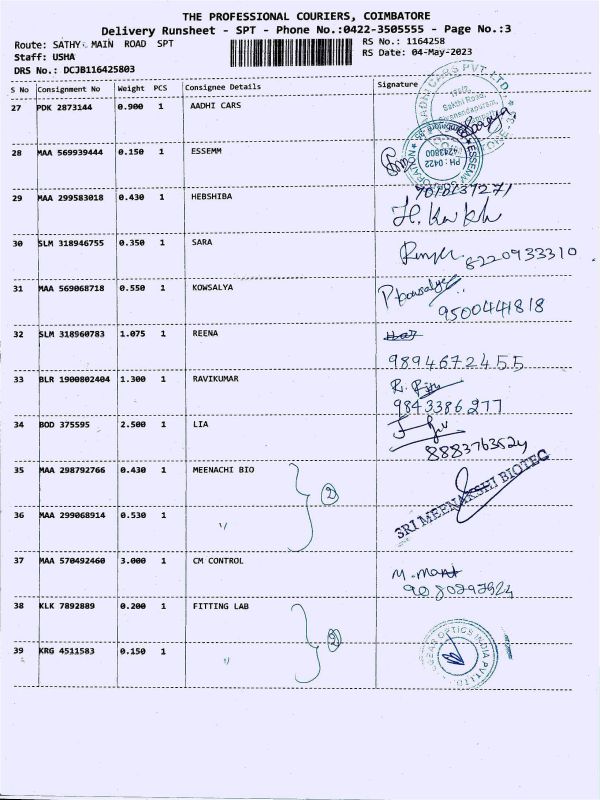 THE PROFESSIONAL COURIERS, COIMBATORE
Delivery Runsheet - SPT - Phone No.:0422-3505555 - Page No.:3
Route: SATHY MAIN ROAD SPT RS No.: 1164258
Staff: USHA RS Date: 04-May-2023
DRS No.: DCJB116425803
S No Consignment No Weight PCS Consignee Details Signature
27 PDK 2873144 0.900 1 AADHI CARS
AADHI CARS PVT. LTD.
Sakthi Road,
28 MAA 569939444 0.150 1 ESSEMM
ESSEMM CORPORATION
PH : 0422
4243800
29 MAA 299583018 0.430 1 HEBSHIBA
30 SLM 318946755 0.350 1 SARA
8220933310
31 MAA 569068718 0.550 1 KOWSALYA
P Kowsalya
9500441818
32 SLM 318960783 1.075 1 REENA
9894672455
33 BLR 1900802404 1.300 1 RAVIKUMAR
9843386277
34 BOD 375595 2.500 1 LIA
8883763524
35 MAA 298792766 0.430 1 MEENACHI BIO
2
SRI MEENAKSHI BIOTEC
36 MAA 299068914 0.530 1 "
37 MAA 570492460 3.000 1 CM CONTROL
M. Mani
9080297524
38 KLK 7892889 0.200 1 FITTING LAB
2
39 KRG 4511583 0.150 1 "
GEAR OPTICS INDIA PVT. LTD